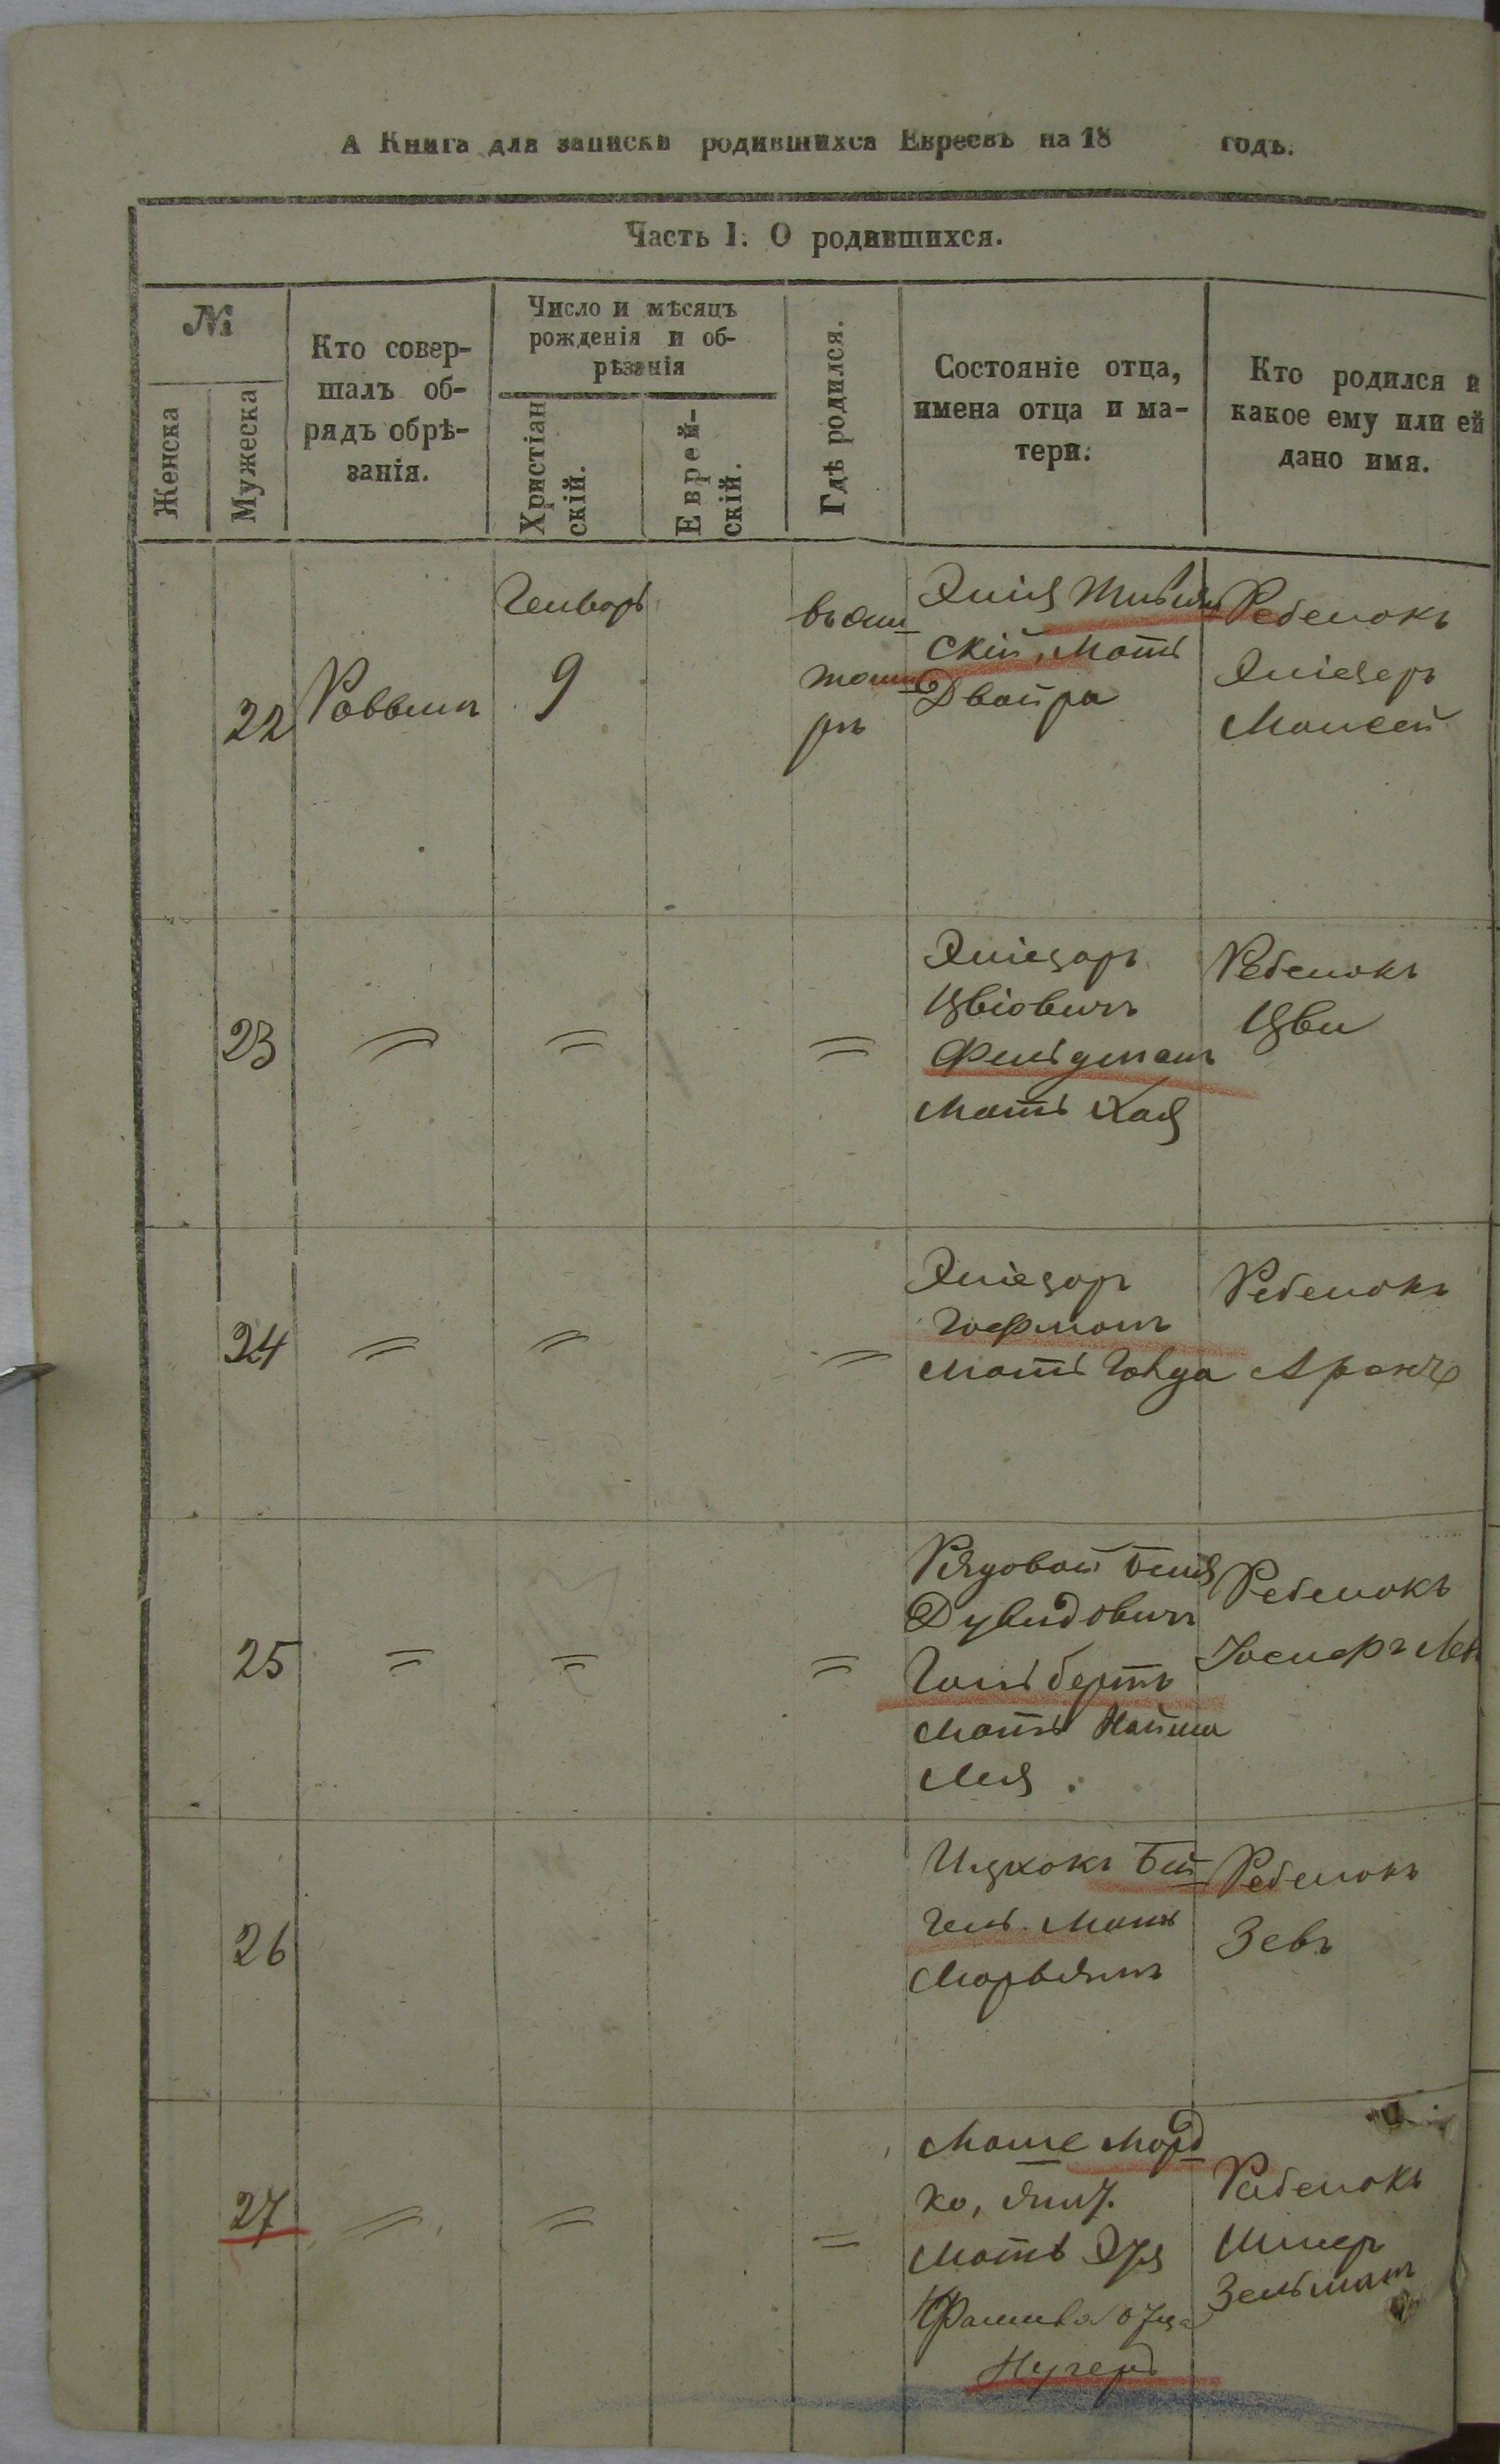 А Книга для записки родившихся Евреевъ на 18 годъ.
Часть I. О родившихся.
№
Женска
Мужеска
Кто совер-
шалъ об-
рядъ обрѣ-
занія.
Число и мѣсяцъ
рожденія и об-
рѣзанія
Христіан
скій.
Еврей-
скій.
Гдѣ родился.
Состояніе отца,
имена отца и ма-
тери.
Кто родился и
какое ему или ей
дано имя.
22
Раввинъ
Генварь
9
въ
ръ
Элія
скій, Мать
Двойра
Ребенокъ
Эліезеръ
Моисей
23
=
=
=
Эліезаръ
Цвіовичъ
Фельдманъ
Мать Хая
Ребенокъ
Цви
24
=
=
=
Эліезаръ
Гофманъ
Мать
Ребенокъ
Аронъ
25
=
=
=
Рядовой
Дувидовичъ
Гольбертъ
Мать
Лия.
Ребенокъ
Іосифъ
26
Ицхокъ Бей
гель Мать
Морьямъ
Ребенокъ
Зевъ
27
=
=
=
Моше Морд
ко,
Мать
Фамилія отца
Ребенокъ
Меиеръ
Зельманъ